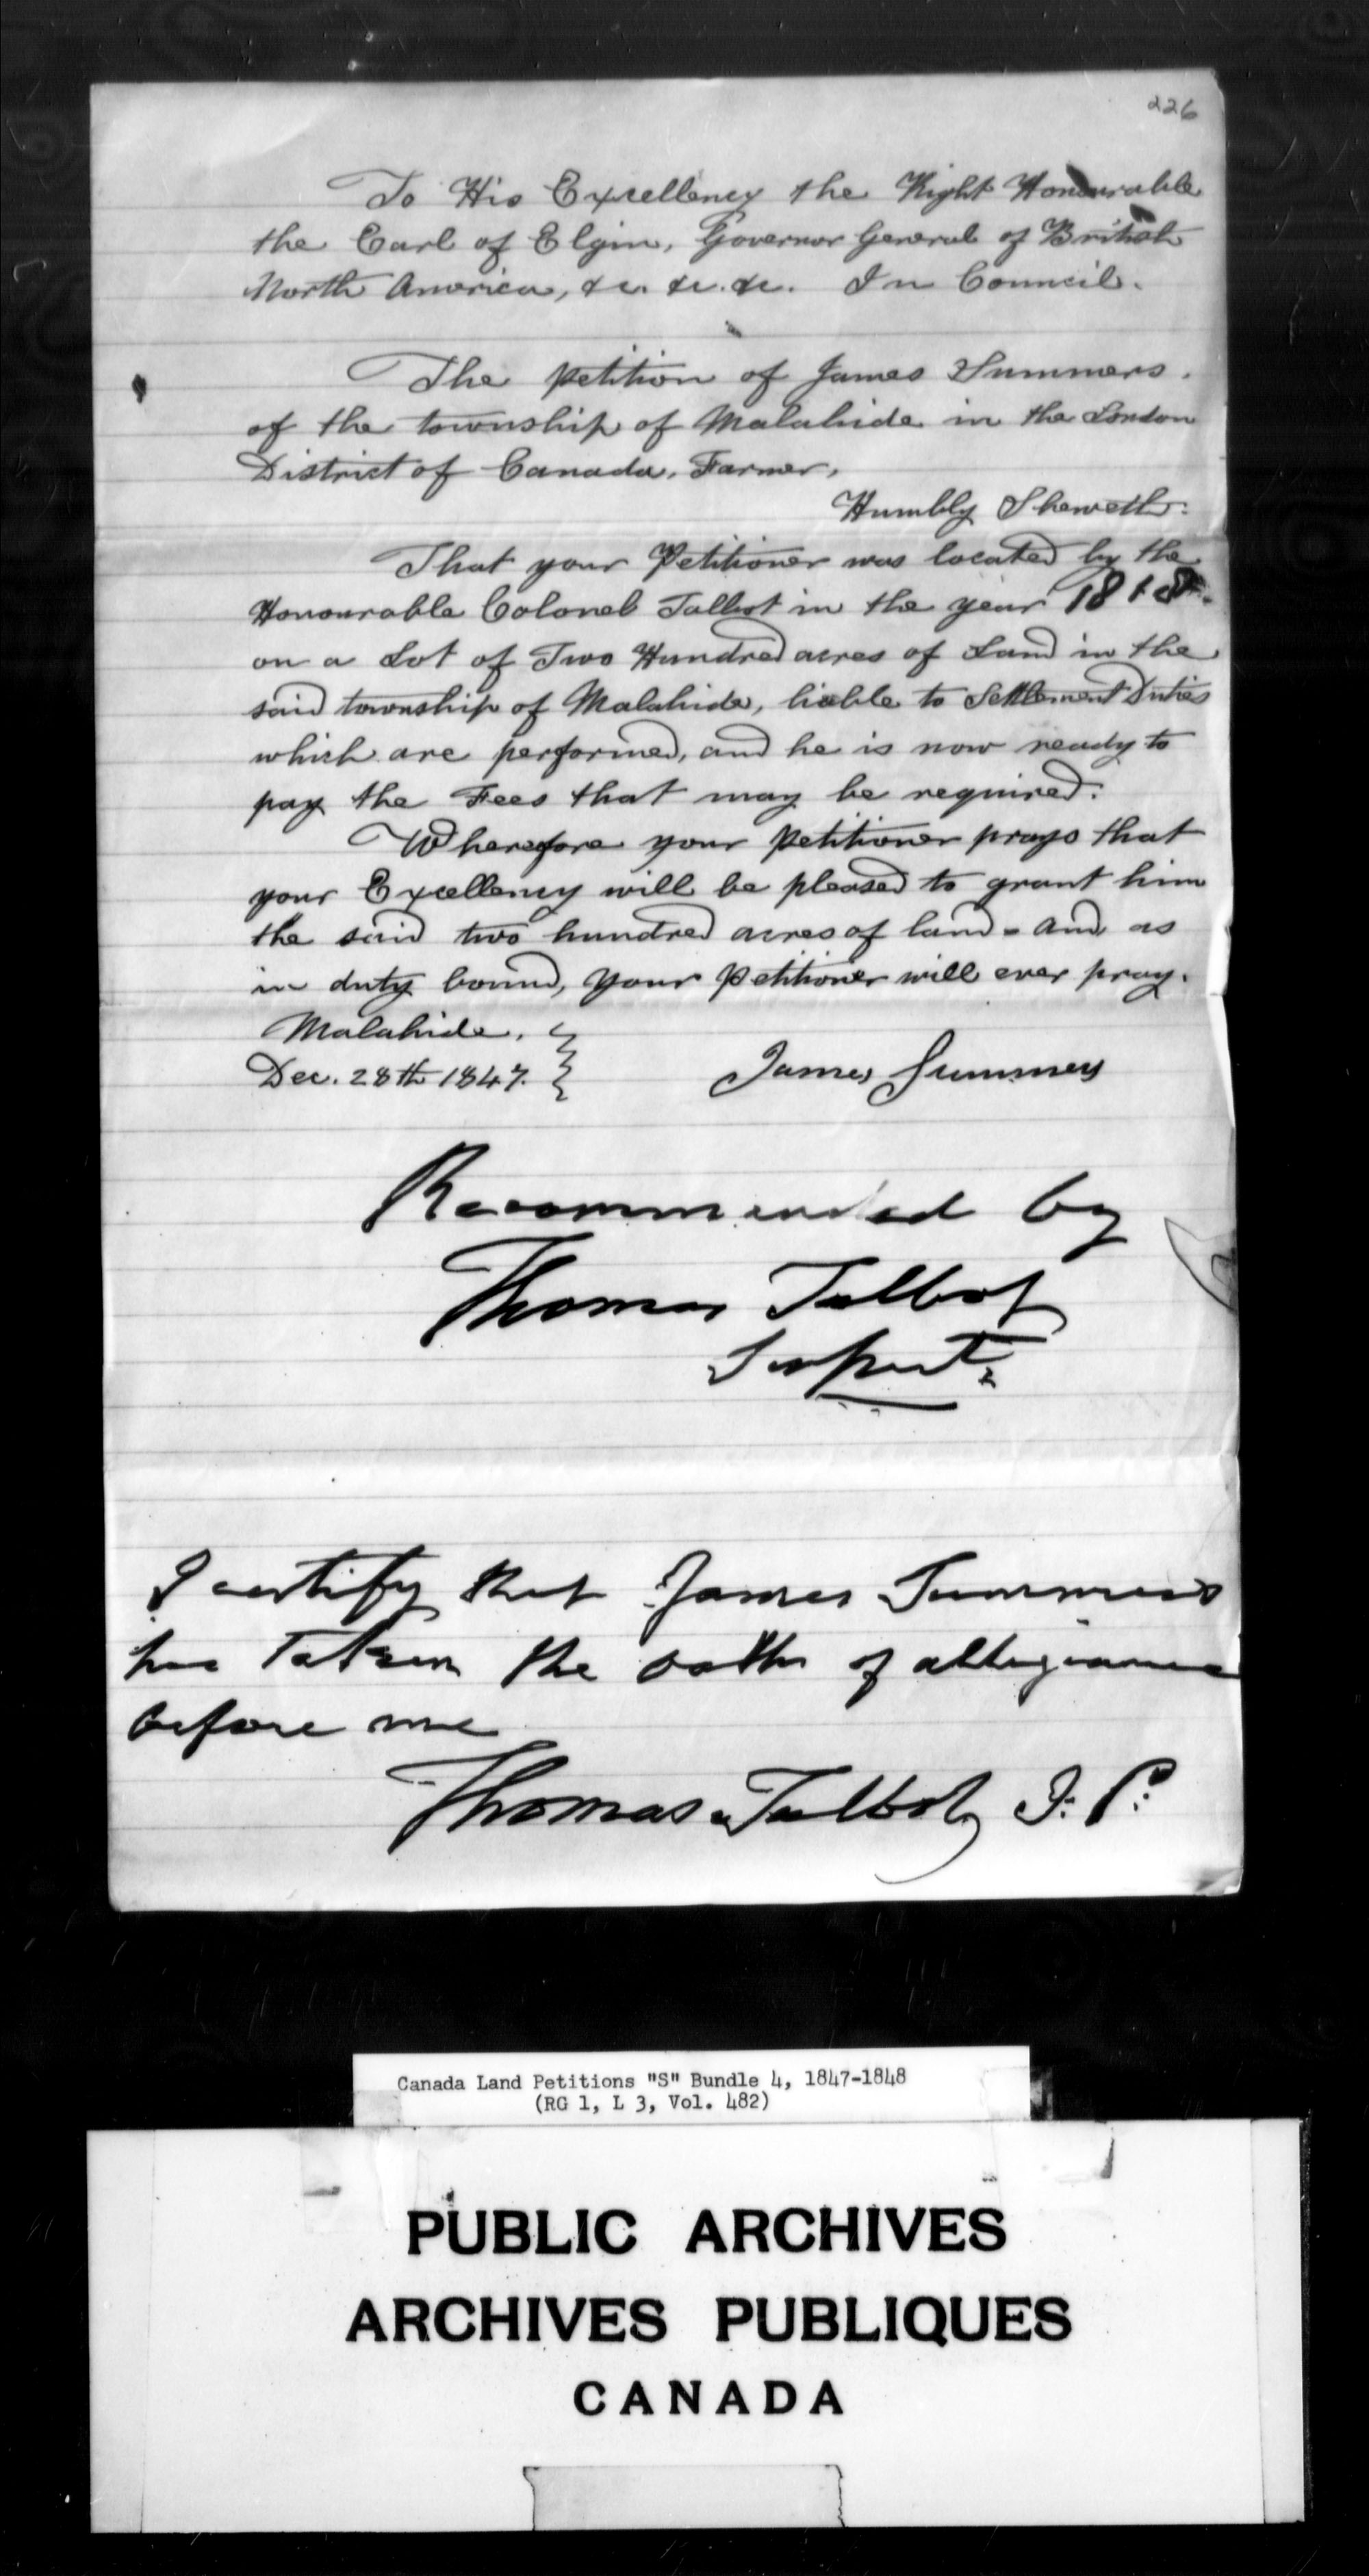 226
To His Excellency the Right Honourable
the Earl of Elgin, Governor General of British
North America, &c. &c. &c. In Council.
The petition of James Summers.
of the township of Malahide in the London
District of Canada, Farmer,
Humbly Sheweth:
That your Petitioner was located by the
Honourable Colonel Talbot in the year 1818.
on a Lot of Two Hundred acres of Land in the
said township of Malahide, liable to Settlement Duties
which are performed, and he is now ready to
pay the Fees that may be required:
Wherefore your petitioner prays that
your Excellency will be pleased to grant him
the said two hundred acres of land - and as
in duty bound, your petitioner will ever pray.
Malahide,
Dec. 28th 1847.
James Summers
Recommended by
Thomas Talbot
I certify that James Summers
has taken the oath of allegiance
before me
Thomas Talbot J: P:
Canada Land Petitions "S" Bundle 4, 1847-1848
(RG 1, L 3, Vol. 482)
PUBLIC ARCHIVES
ARCHIVES PUBLIQUES
CANADA